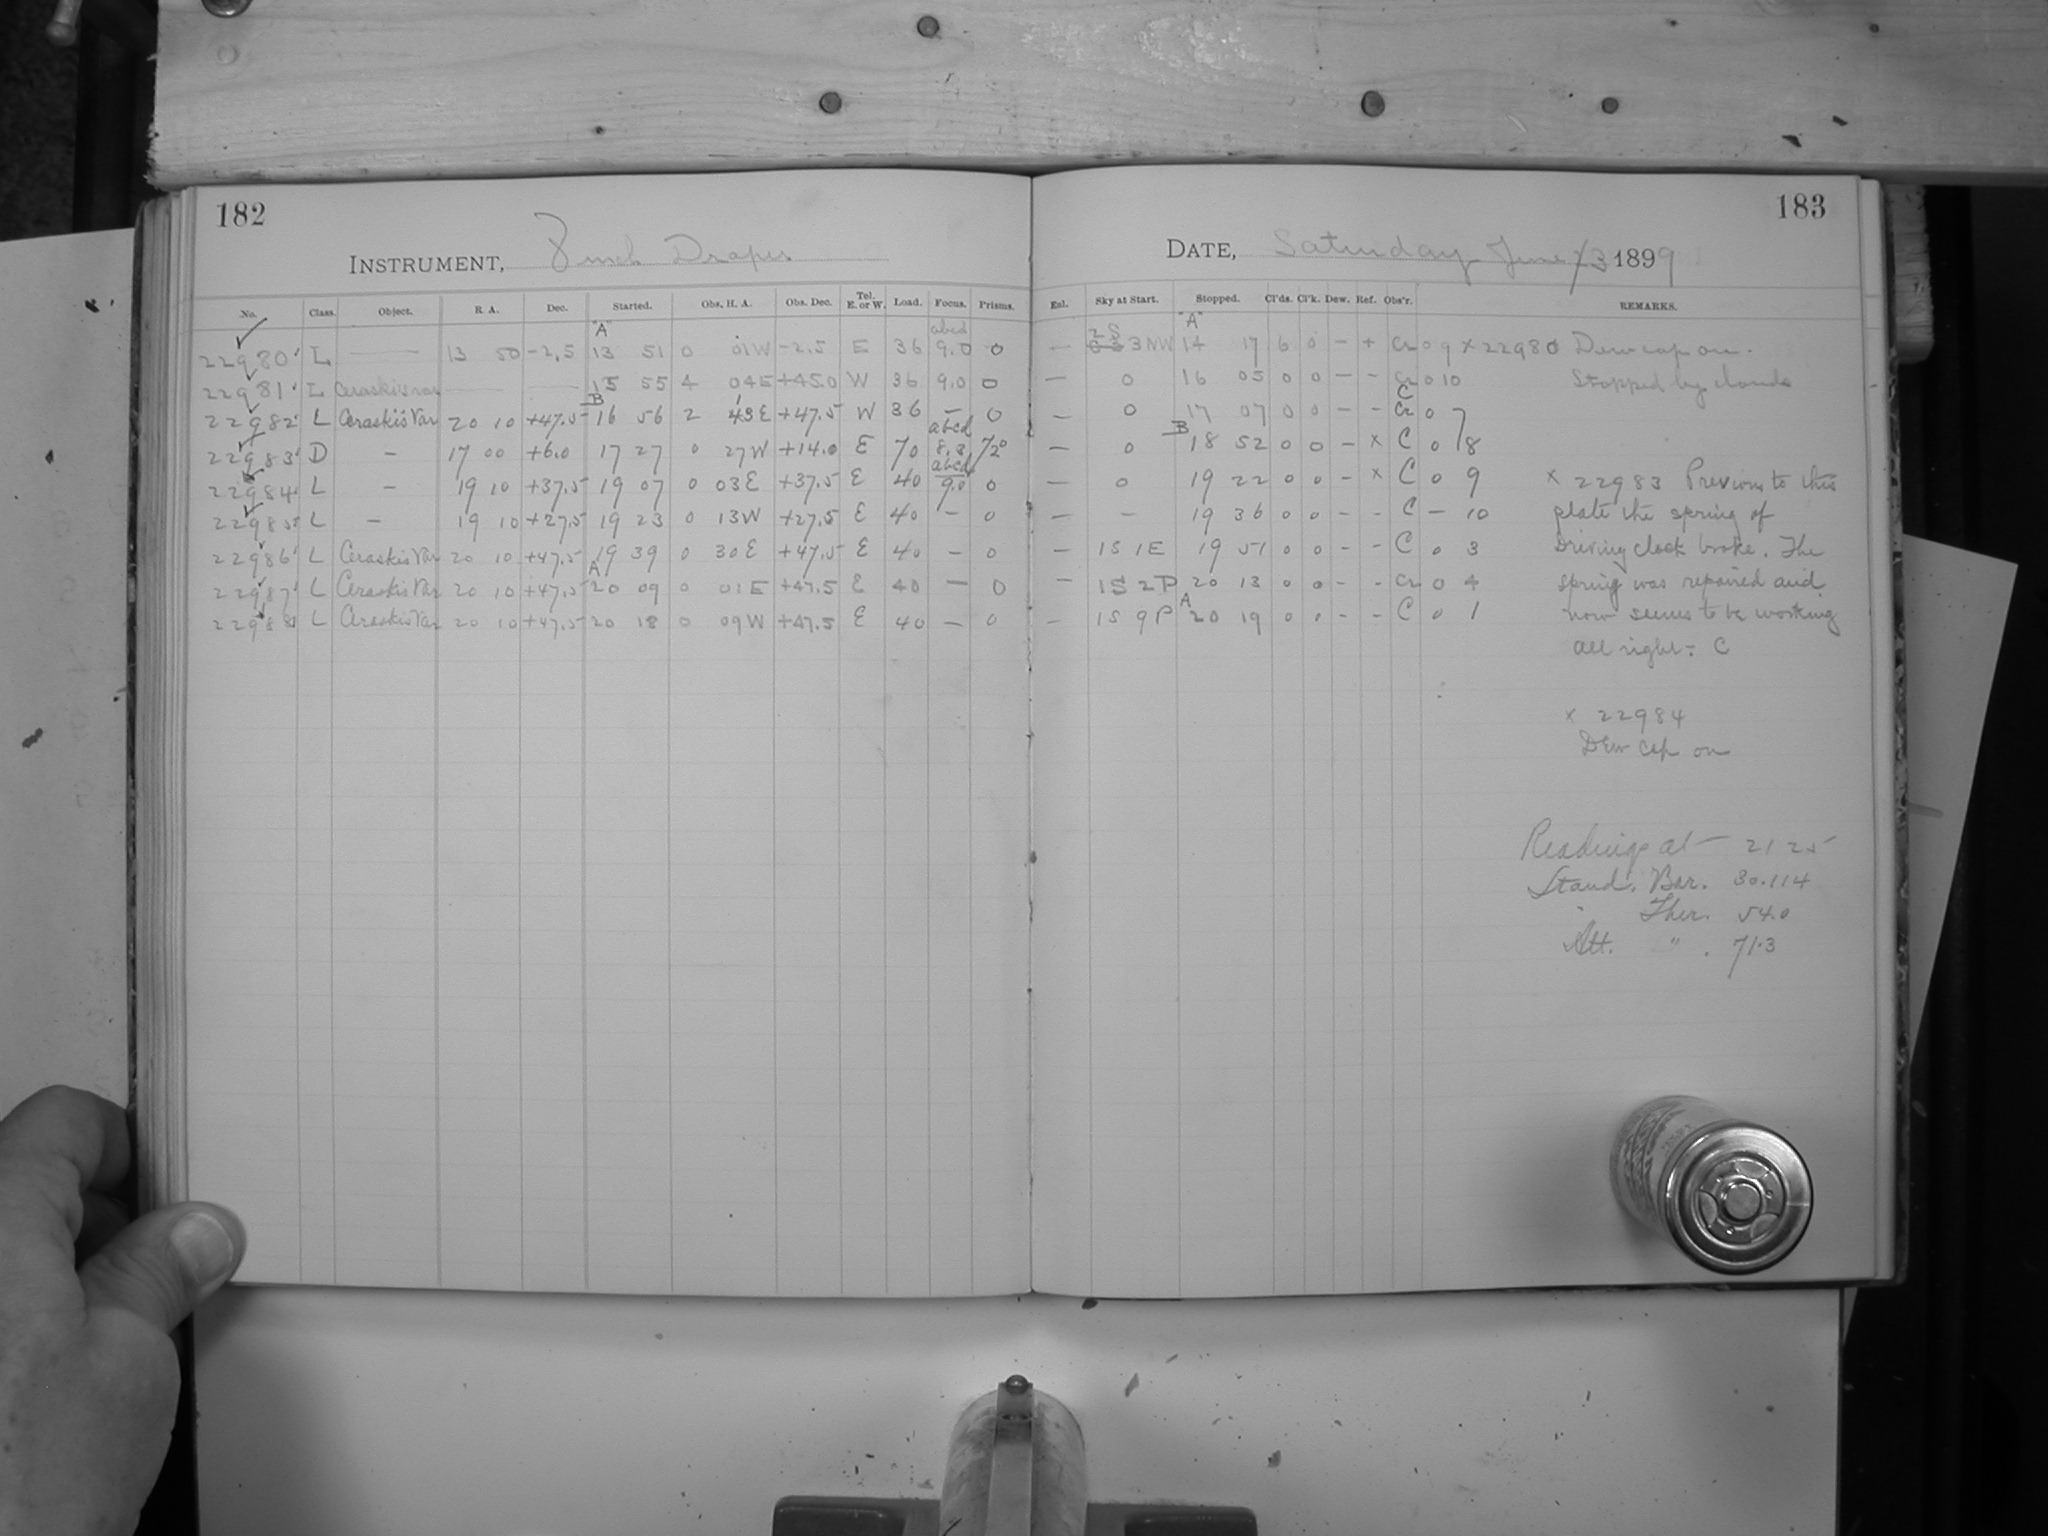 182
INSTRUMENT, 8 inch Draper
No. Class. Object. R. A. Dec. Started. Obs. H. A. Obs. Dec. Tel. E. or W. Load. Focus. Prisms.
"A" abcd
22980 L — 13 50 -2.5 13 51 0 01W -2.5 E 36 9.0 0
22981 L Ceraski's var — — 15 55 4 04E +45.0 W 36 9.0 0
B
22982 L Ceraski's Var 20 10 +47.5 16 56 2 43E +47.5 W 36 — 0
abcd
22983 D — 17 00 +6.0 17 27 0 27W +14.0 E 70 8.3 7.2°
abcd
22984 L — 19 10 +37.5 19 07 0 03E +37.5 E 40 9.0 0
22985 L — 19 10 +27.5 19 23 0 13W +27.5 E 40 — 0
22986 L Ceraskis Var 20 10 +47.5 19 39 0 30E +47.5 E 40 — 0
A
22987 L Ceraskis Var 20 10 +47.5 20 09 0 01E +47.5 E 40 — 0
22988 L Ceraskis Var 20 10 +47.5 20 18 0 09W +47.5 E 40 — 0
183
DATE, Saturday June 3 1899
Exl. Sky at Start. Stopped. Cl'ds. Cl'k. Dew. Ref. Obs'r. REMARKS.
2S "A"
— 3NW 14 17 6 0 — + Cr 0 9 x 22980 Dew cap on.
— 0 16 05 0 0 — — Cr 0 10 Stopped by clouds
C
— 0 17 07 0 0 — — Cr 0 7
B
— 0 18 52 0 0 — x C 0 8
— 0 19 22 0 0 — x C 0 9 x 22983 Previous to this
— — 19 36 0 0 — — C — 10 plate the spring of
— 1S 1E 19 51 0 0 — — C 0 3 driving clock broke. The
— 1S 2P 20 13 0 0 — — Cr 0 4 spring was repaired and
A
— 1S 9P 20 19 0 0 — — C 0 1 now seems to be working
all right - C
x 22984
Dew cap on
Readings at — 21 25
Stand. Bar. 30.114
Ther. 54.0
Att. " . 71.3